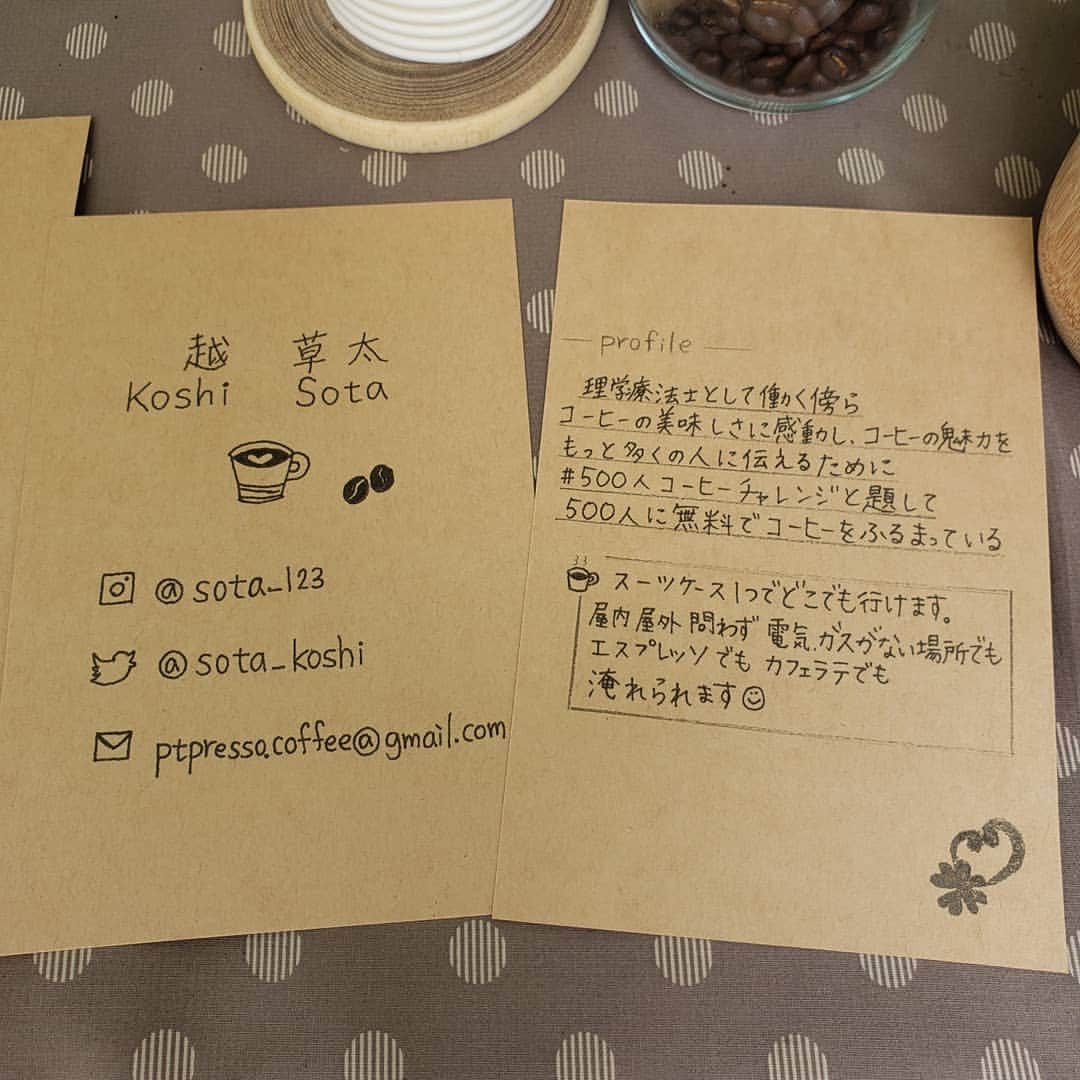 越 草太
Koshi Sota
@sota_123
@sota_koshi
ptpresso.coffee@gmail.com
profile
理学療法士として働く傍ら
コーヒーの美味しさに感動し、コーヒーの魅力を
もっと多くの人に伝えるために
#500人コーヒーチャレンジと題して
500人に無料でコーヒーをふるまっている
スーツケース1つでどこでも行けます。
屋内屋外問わず電気、ガスがない場所でも
エスプレッソでもカフェラテでも
淹れられます☺